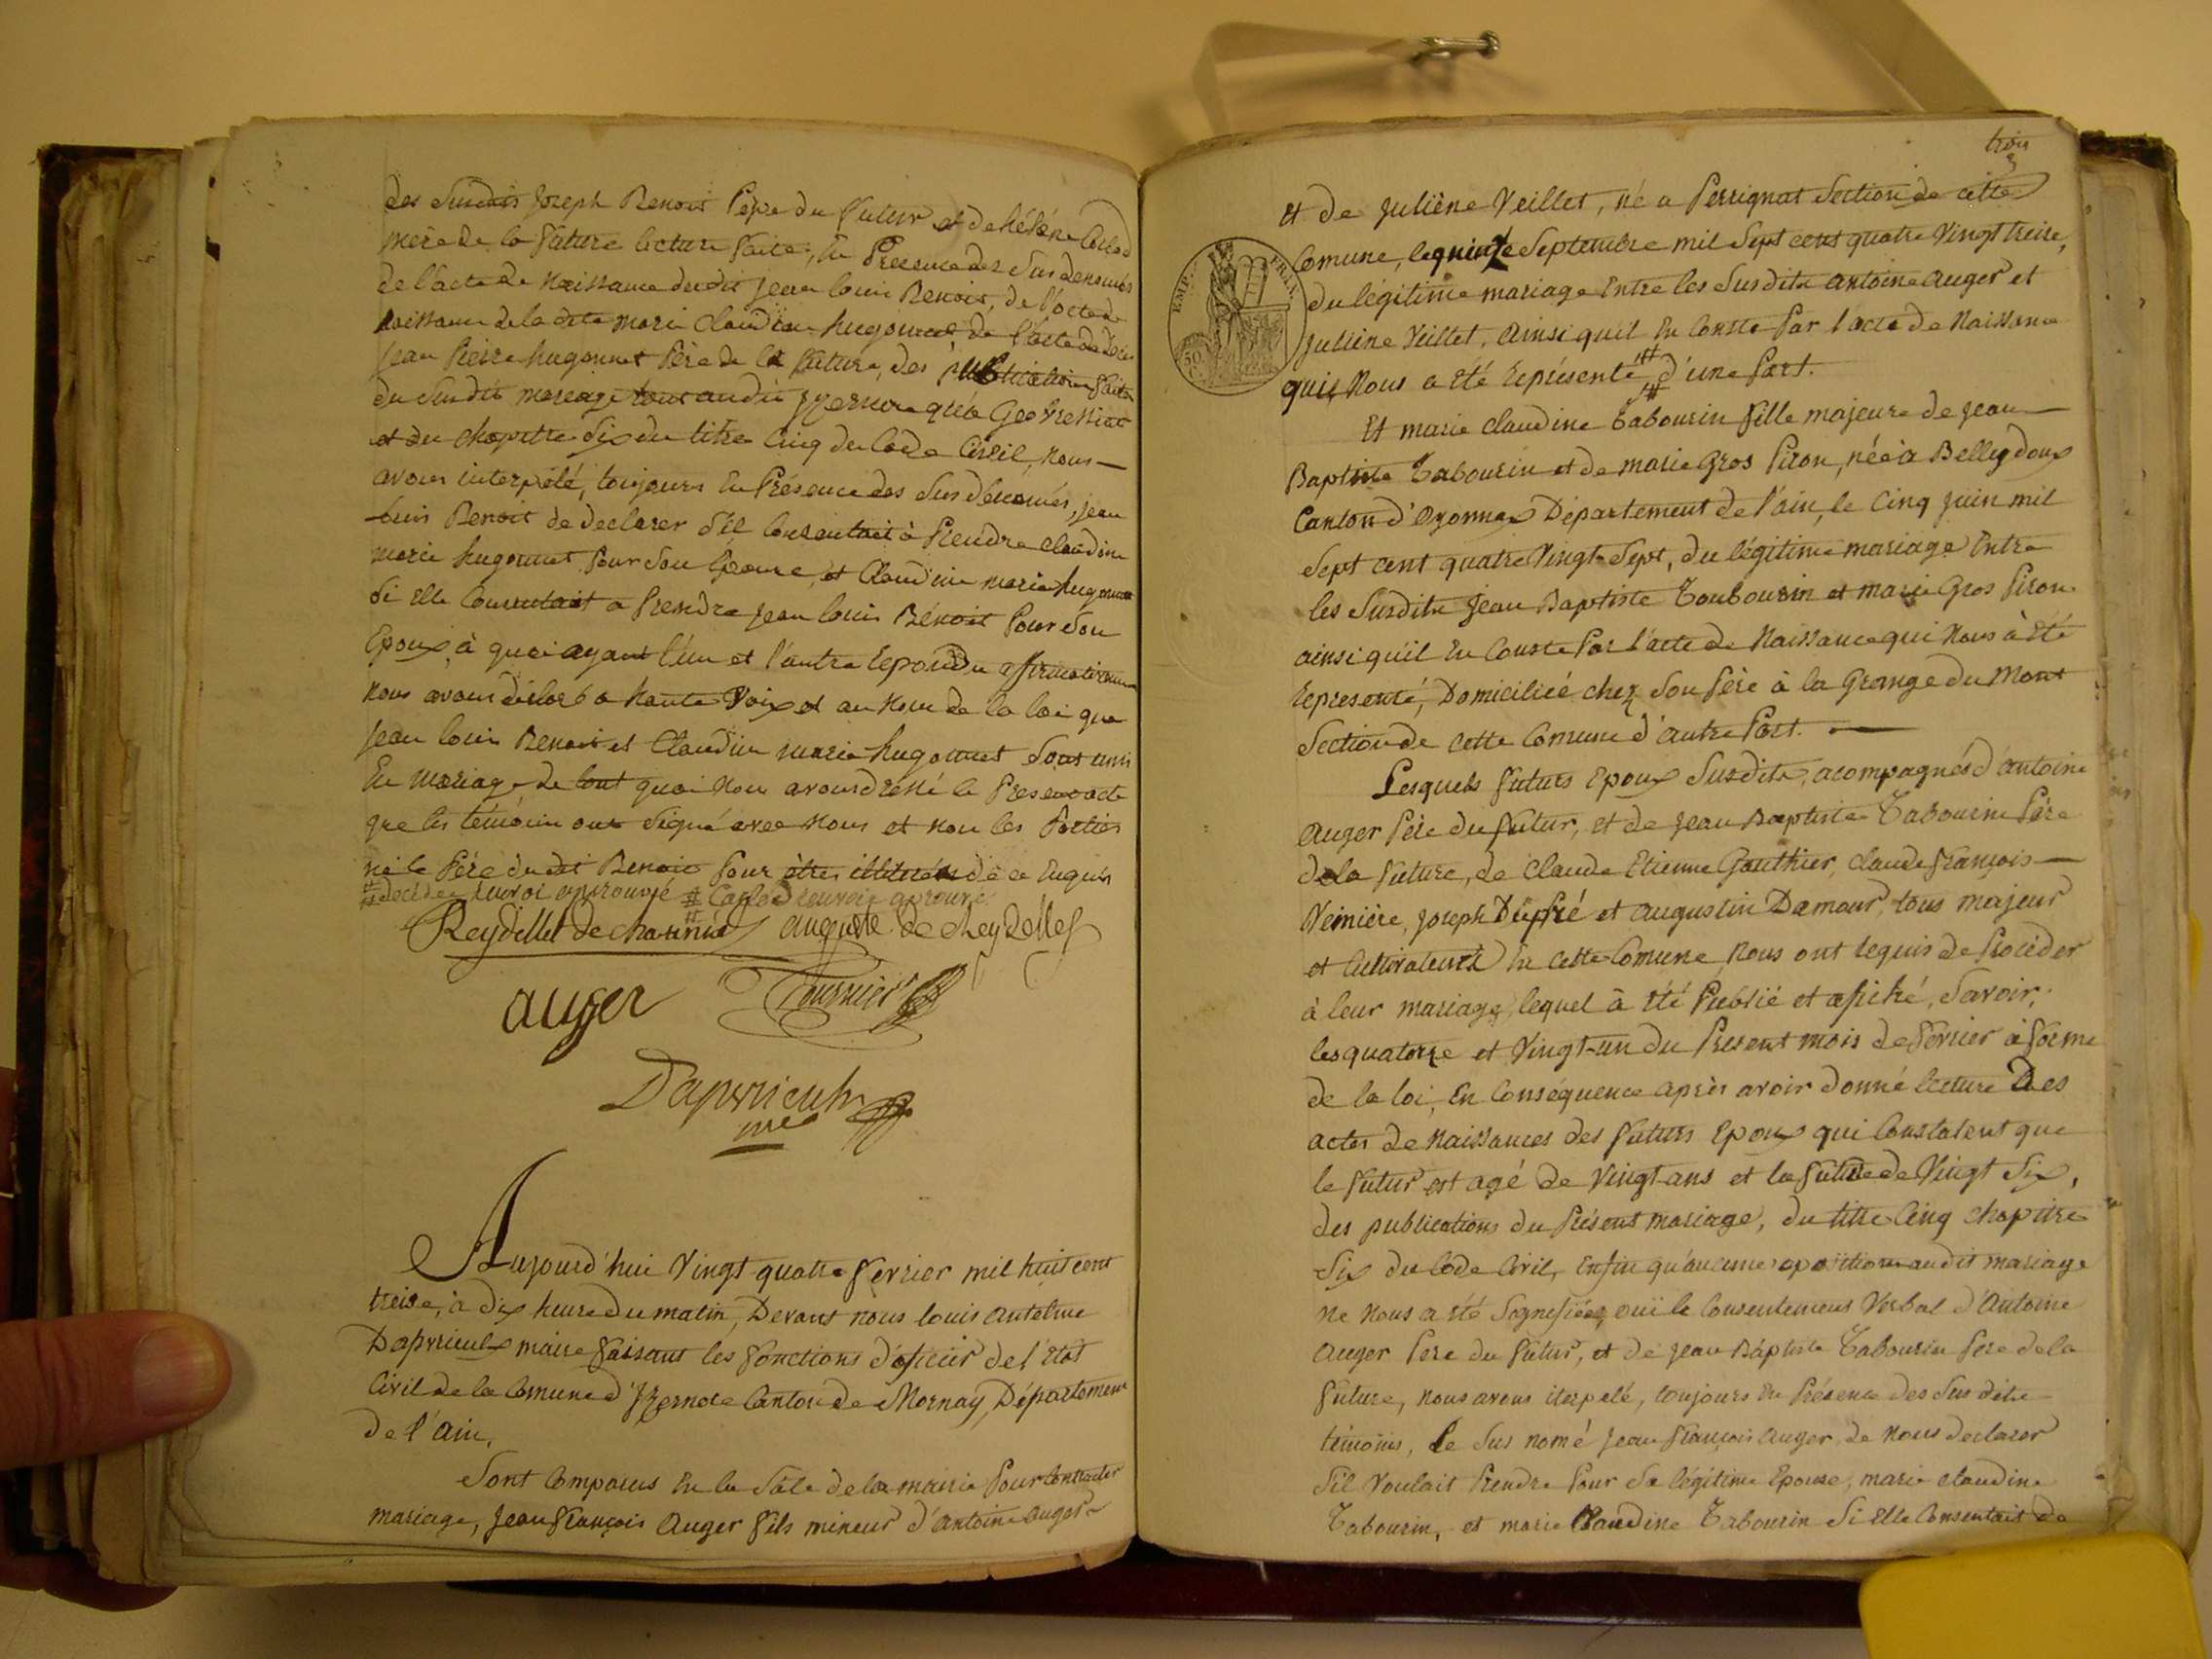 des Susdits Joseph Benoit Pépe du futur et de héléne Carlod
mére de la future lecture faite, En Presence des Susdenomés
de l'acte de Naissance dudit jean louis Benoit, de l'acte de
naissance de la dite marie Claudine hugonnet, de l'acte de décès
jean Pierre hugonnet Pére de la future, des publications faites
du Susdit mariage tant audit Izernore qu'a Geovressiat
et du chapitre Six du titre Cinq du Code Civil, Nous
avons interpélé, toujours En Présence des Susdénomés, jean
louis Benoit de declarer S'il Consentait à Prendre claudine
marie hugonnet Pour Son Epouse, et Claudine marie hugonnet
Si Elle Consentait a Prendre jean louis Bénoit Pour Son
Epoux, à quoi ayant l'un et l'autre repondu affirmativement
nous avons déclaré a haute Voix et au Nom de la loi que
jean louis Benoit et Claudine marie hugonnet Sont unis
En Mariage de tout quoi Nous avons dressé le Present acte
que les témoins ont Signé avec Nous et Non les Parties
ni le Pére dudit Benoit Pour être illitérés de ce Enquis
# renvoi aprouvé # Carlod renvoi aprouvé
Reydellet de chavannes auguste de cheydelles
auger Tournier
Dapvrieulx
me
Aujourd'hui Vingt quatre fevrier mil huit cent
treise, à dix heure du matin, Devant nous louis antelme
Dapvrieulx maire faisant les fonctions d'oficier de l'état
Civil de la Comune d'Izernore Canton de Mornay, Département
de l'Ain,
Sont Comparus En la Sale de la mairie Pour Contracter
mariage, Jean françois Auger fils mineur d'Antoine Auger
trois
3
et de Juliène Veillet, né a Perrignat Section de cette
Comune, le quinze Septembre mil Sept cent quatre Vingt treise,
du légitime mariage Entre les Susdits antoine auger et
Juliène Veillet, Ainsi quil En Conste Par l'acte de Naissance
qui Nous a été Représenté # d'une Part.
EMP. FRAN.
50
Et marie claudine Tabourin fille majeure de jean
Baptiste Tabourin et de marie Gros Piron, née à Belleydoux
Canton d'Oyonnax Département de l'ain, le Cinq juin mil
Sept cent quatre Vingt Sept, du légitime mariage Entre
les Susdits Jean Baptiste Toubourin et marie Gros Piron
ainsi qu'il En Conste Par l'acte de Naissance qui Nous à été
Représenté, Domiciliée chez Son Pére à la Grange du Mont
Section de cette Comune d'autre Part.
Lesquels futurs Epoux Susdits, acompagnés d'antoine
Auger Pére du futur, et de Jean Baptiste Tabourin Pére
de la future, de Claude Etienne Gauthier, claude françois
Véinière, Joseph et augustin Damour, tous majeur
et Cultivateurs En cette Comune Nous ont requis de Procéder
à leur mariage, lequel à été Publié et afiché, Savoir,
les quatorze et Vingt-un du Présent mois de fevrier à forme
de la loi, En Conséquence après avoir donné lecture Des
actes de Naissances des futurs Epoux qui Constatent que
le futur est agé de Vingt ans et la future de Vingt Six,
des publications du Présent mariage, du titre Cinq chapitre
Six du Code Civil, Enfin qu'aucune oposition audit mariage
ne nous a été Signefiée, ouï le Consentement Verbal d'Antoine
Auger Pere du futur, et de jean Baptiste Tabourin Pere de la
future, nous avons iterpelé, toujours En Présence des Sus dits
témoins, Le Sus nomé jean françois Auger de Nous declarer
S'il Voulait Prendre Pour Sa légitime Epouse, marie claudine
Tabourin, et marie Claudine Tabourin Si Elle Consentait de